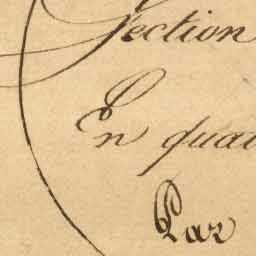 Section
En quat
Par